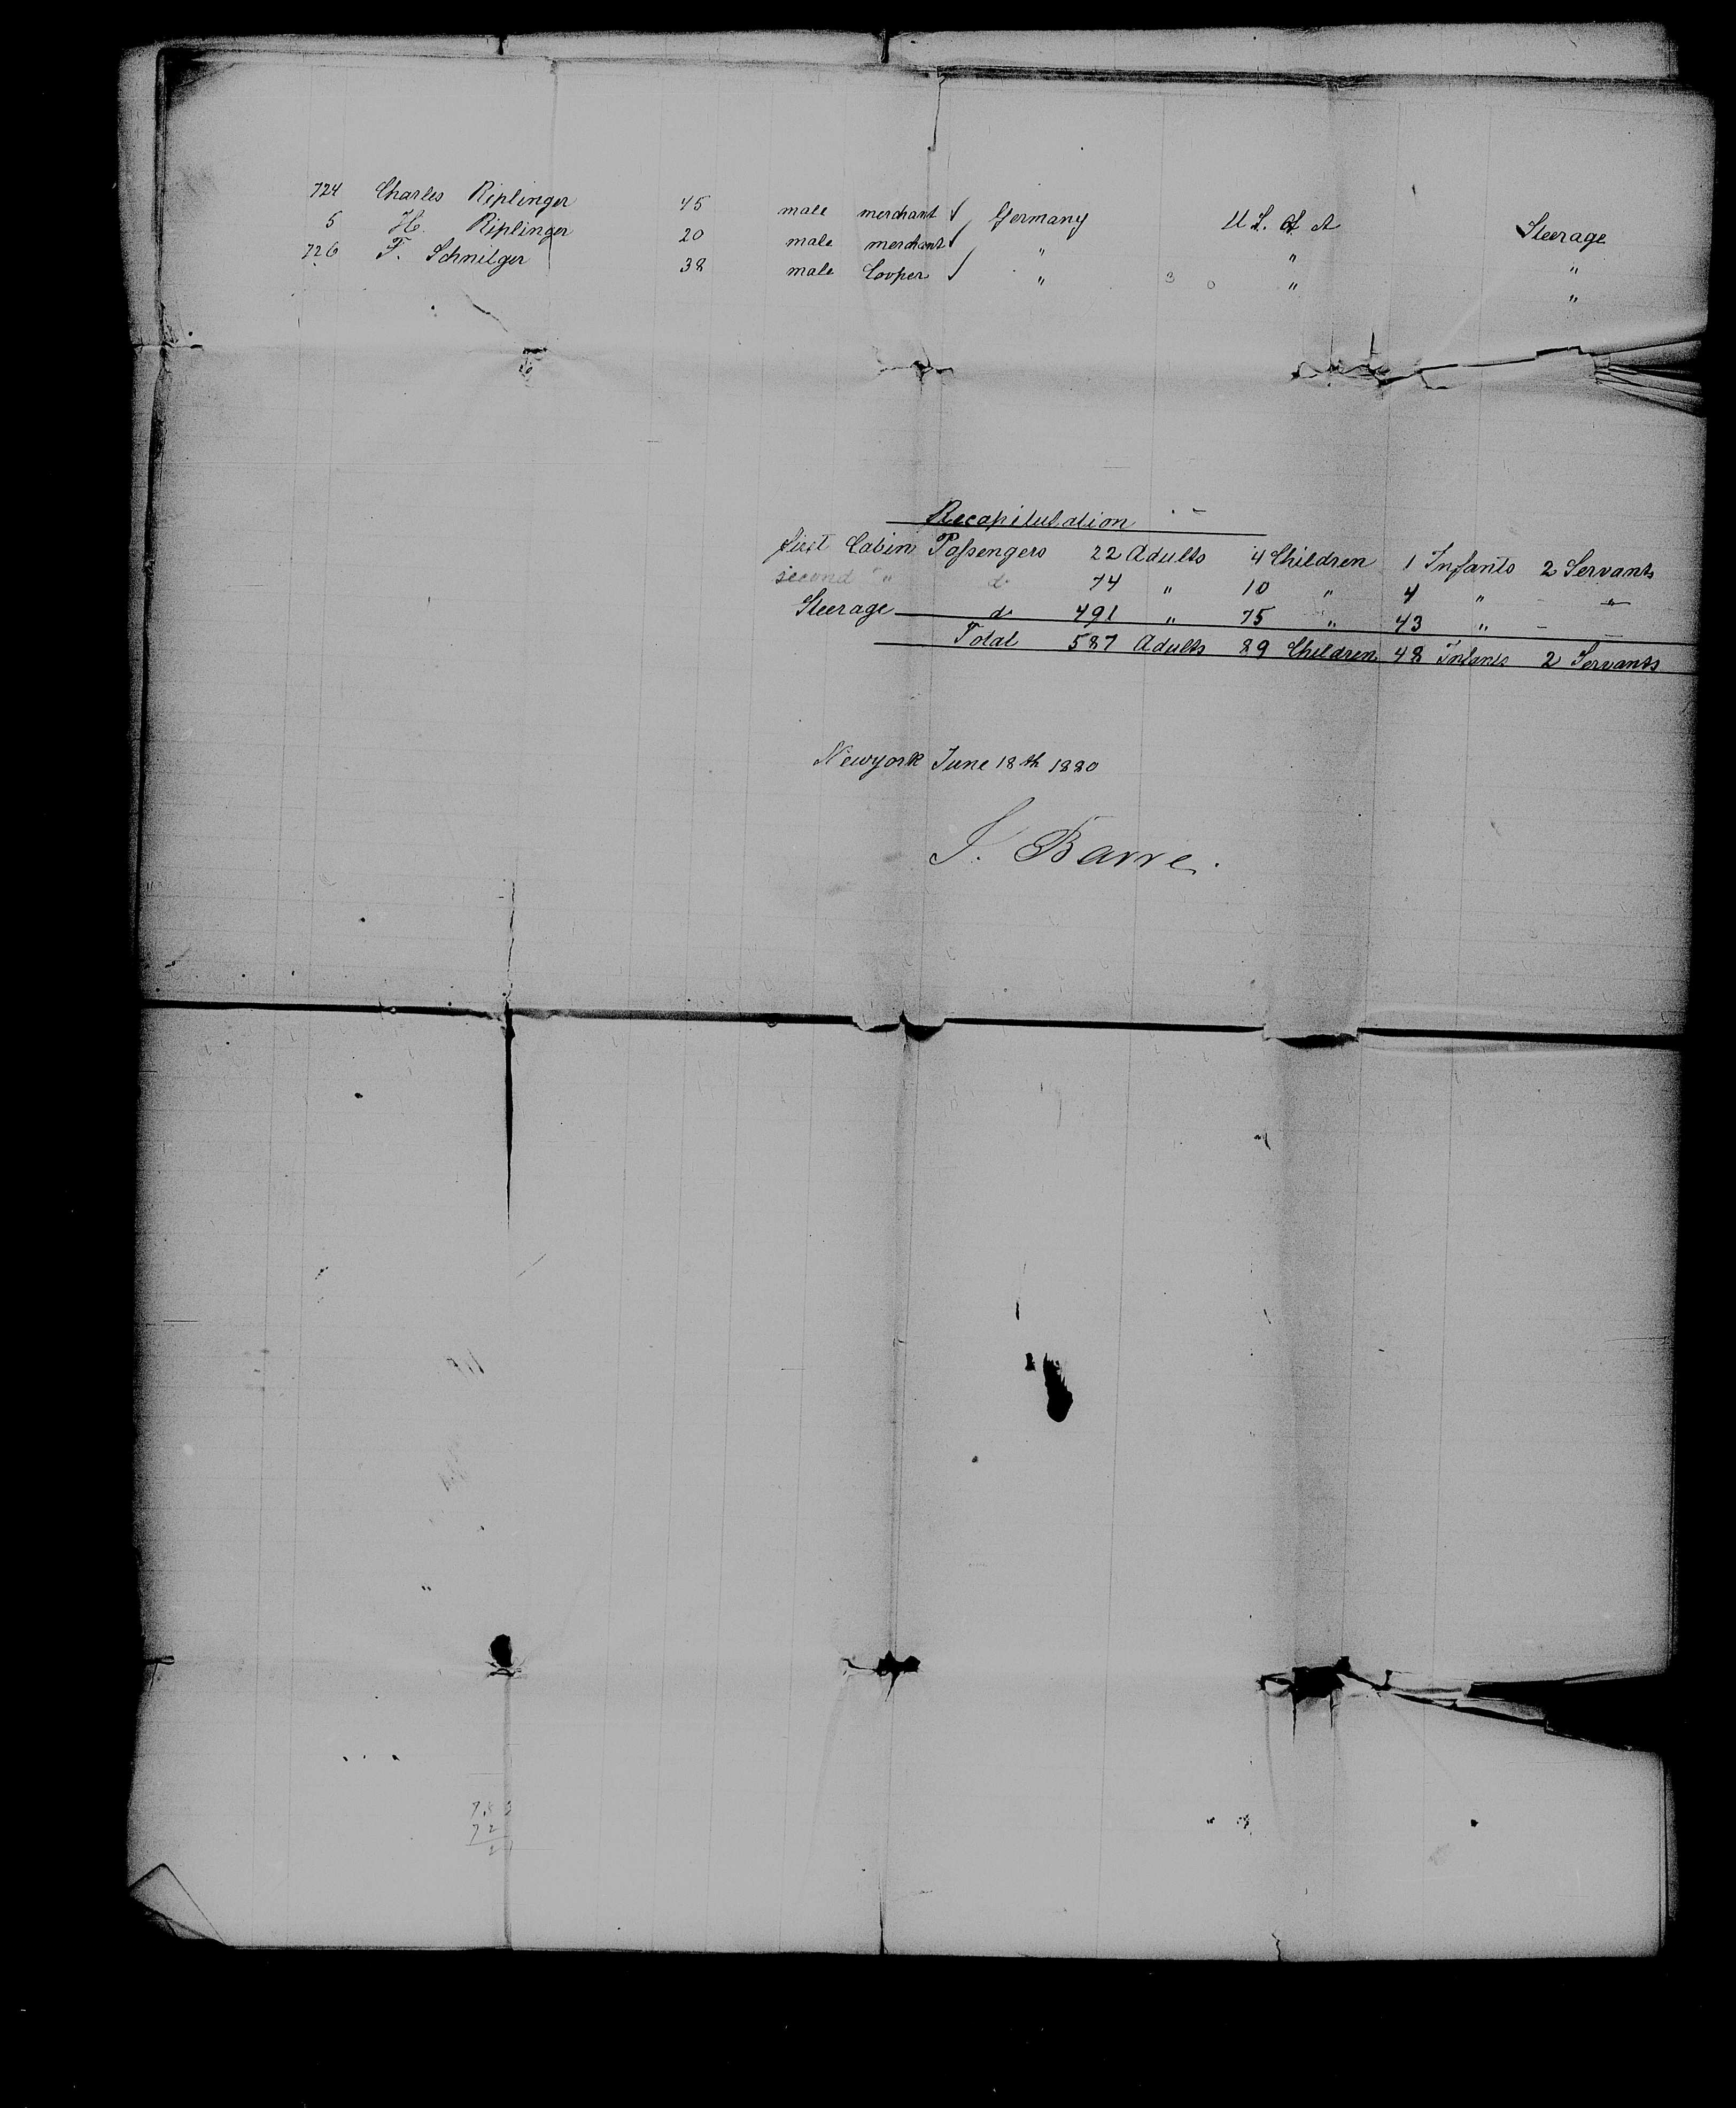 724 Charles Riplinger 45 male merchant ✓ Germany U S. of A Steerage
5 H. Riplinger 20 male merchant ✓ " " "
726 F. Schnilger 38 male Cooper ✓ " 3 0 " "
Recapitulation
first Cabin Passengers 22 Adults 4 Children 1 Infants 2 Servants
second " do 74 " 10 " 4 " - "
Steerage do 491 " 75 " 43 " - -
Total 587 Adults 89 Children 48 Infants 2 Servants
Newyork June 18th 1880
J. Barre.